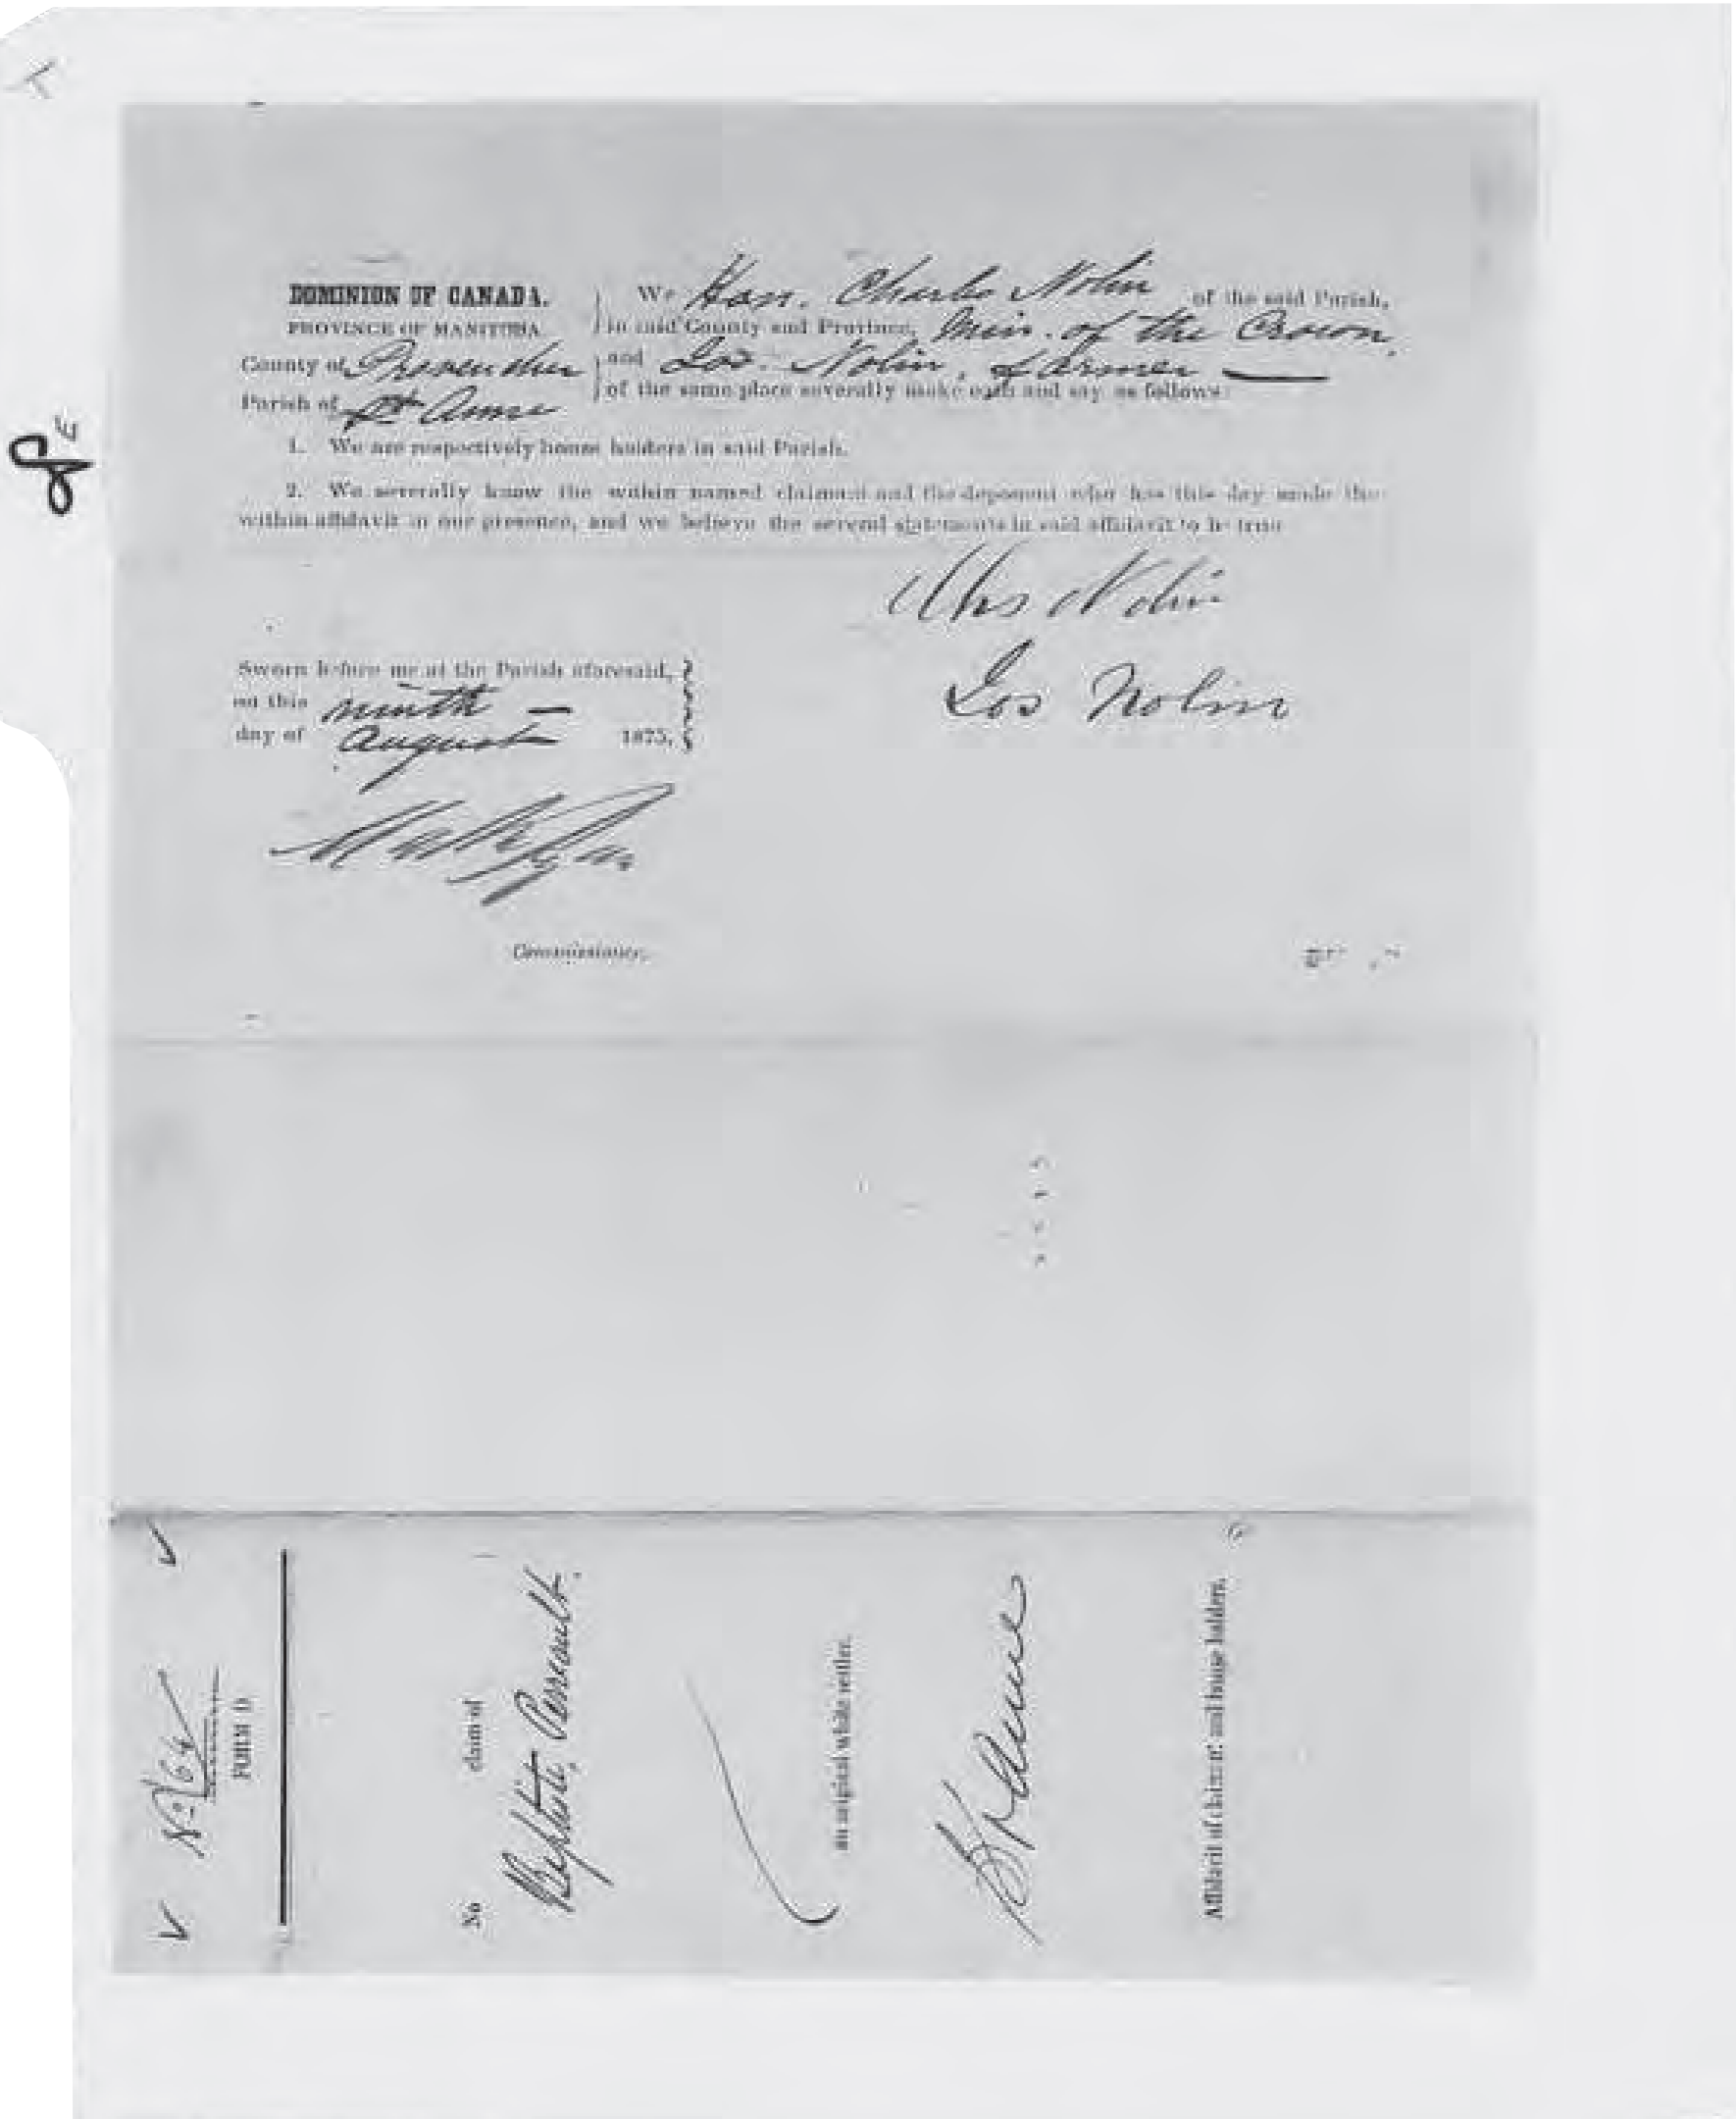 DOMINION OF CANADA.
PROVINCE OF MANITOBA
County of Provencher
Parish of Ste Anne
We Hon. Charles Nolin of the said Parish,
in said County and Province, Min. of the Crown,
and Jos. Nolin, Farmer —
of the same place severally make oath and say as follows:
1. We are respectively house holders in said Parish.
2. We severally know the within named claimant and the deponent who has this day made the
within affidavit in our presence, and we believe the several statements in said affidavit to be true
Chs Nolin
Jos Nolin
Sworn before me at the Parish aforesaid,
on this ninth —
day of August 1875,
Commissioner.
No 64
FORM D
No claim of
Baptiste
an original white settler.
St Anne
Affidavit of claimant and house holders.